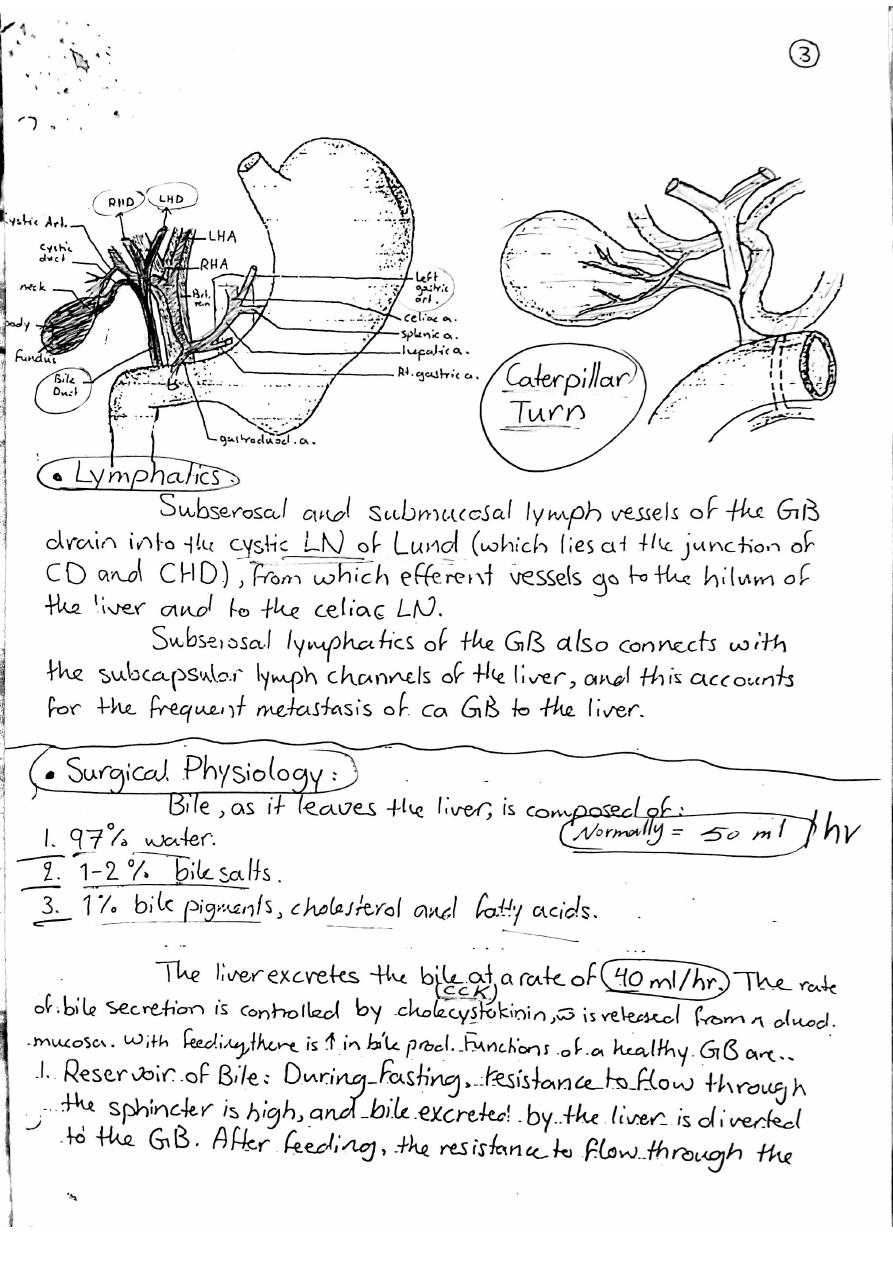 3
RHD
LHD
ystic Art.
cystic
duct
neck
body
fundus
Bile
Duct
LHA
RHA
vein
Left
gastric
art.
celiac a.
splenic a.
hepatic a.
Rt. gastric a.
gastroduod. a.
Caterpillar
Turn
• Lymphatics
Subserosal and submucosal lymph vessels of the GB
drain into the cystic LN of Lund (which lies at the junction of
CD and CHD), from which efferent vessels go to the hilum of
the liver and to the celiac LN.
Subserosal lymphatics of the GB also connects with
the subcapsular lymph channels of the liver, and this accounts
for the frequent metastasis of ca GB to the liver.
• Surgical Physiology:
Bile, as it leaves the liver, is composed of:
1. 97% water.
Normally = 50 ml /hr
2. 1-2% bile salts.
3. 1% bile pigments, cholesterol and fatty acids.
The liver excretes the bile at a rate of 40 ml/hr. The rate
(CCK)
of bile secretion is controlled by cholecystokinin, is released from duod.
mucosa. With feeding, there is ↑ in bile prod. Functions of a healthy GB are..
1. Reservoir of Bile: During fasting, resistance to flow through
the sphincter is high, and bile excreted by the liver is diverted
to the GB. After feeding, the resistance to flow through the